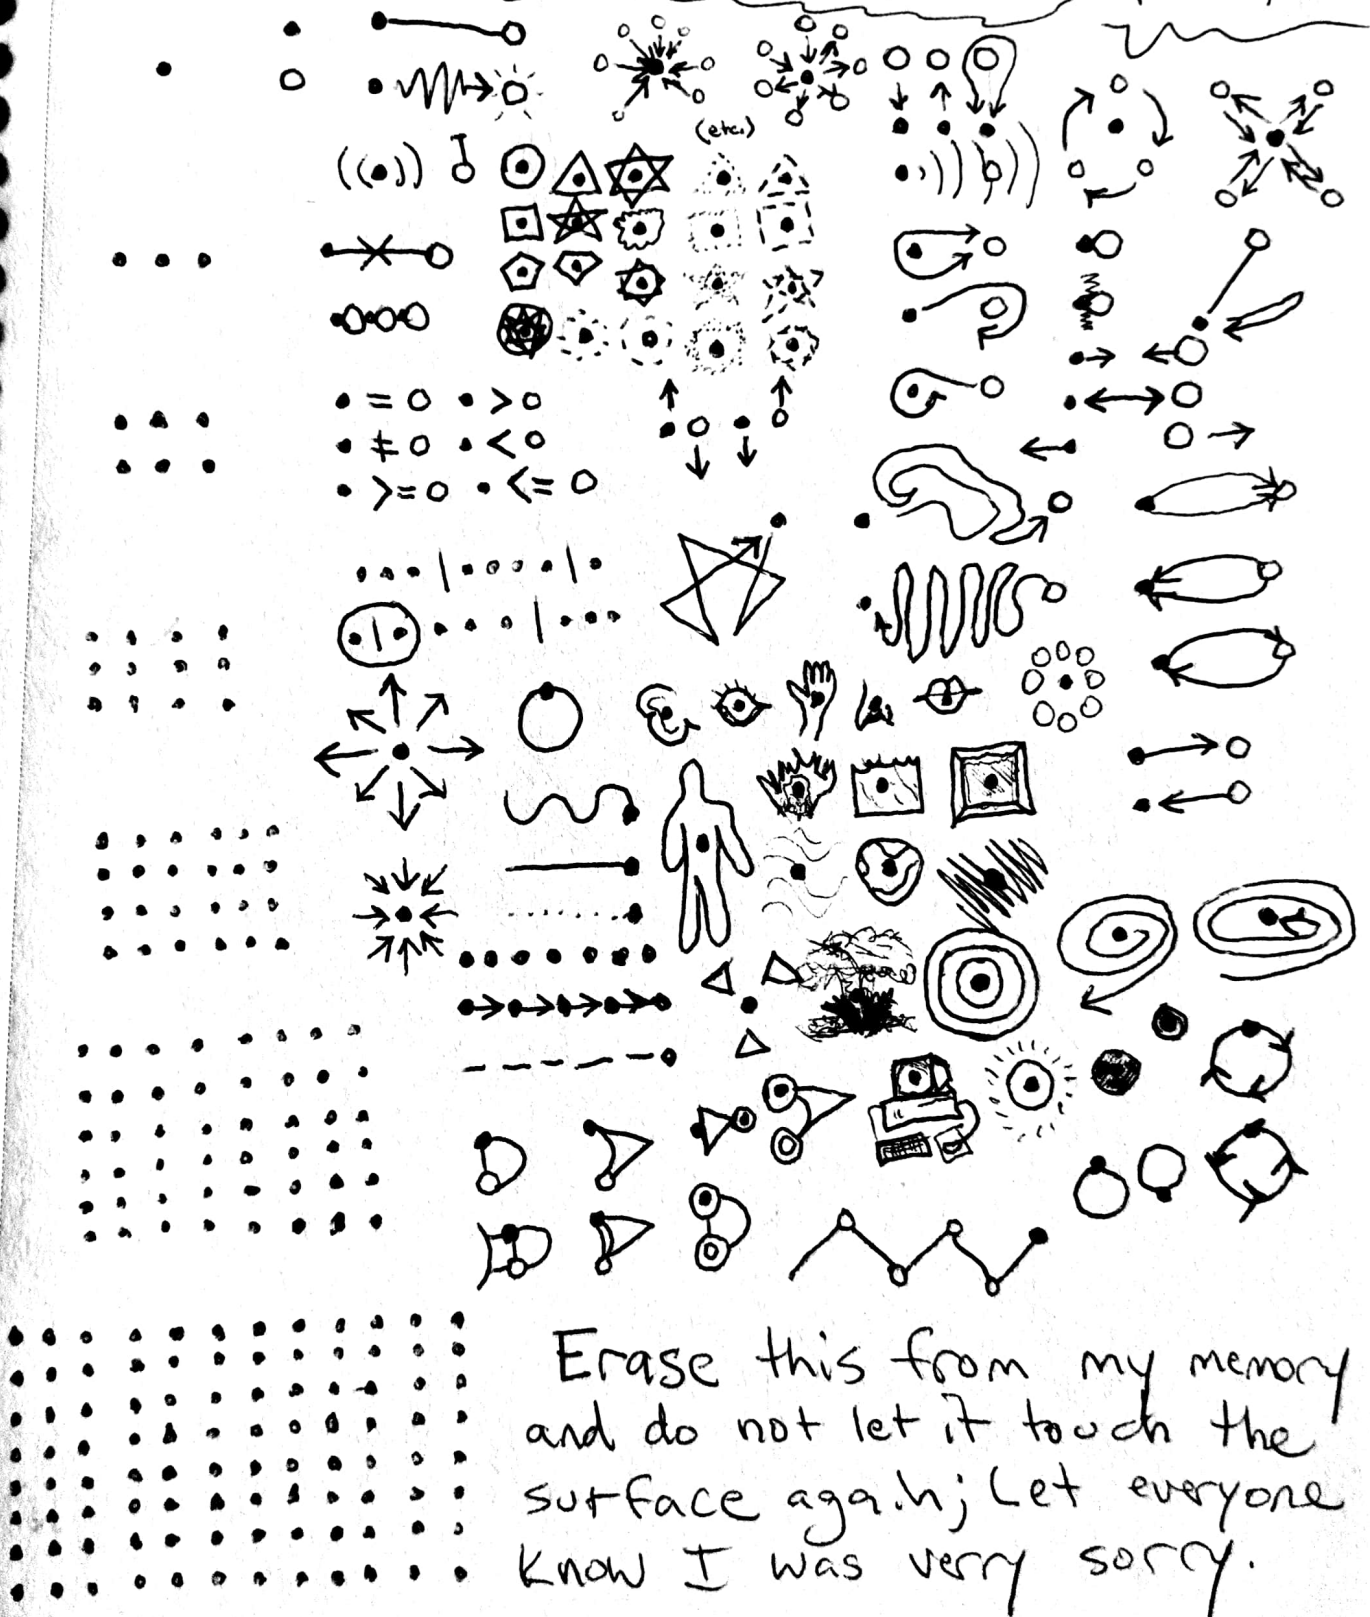 (etc.)
• = O • > O
• ≠ O • < O
• >= O • <= O
Erase this from my memory
and do not let it touch the
surface again; Let everyone
know I was verry sorry.